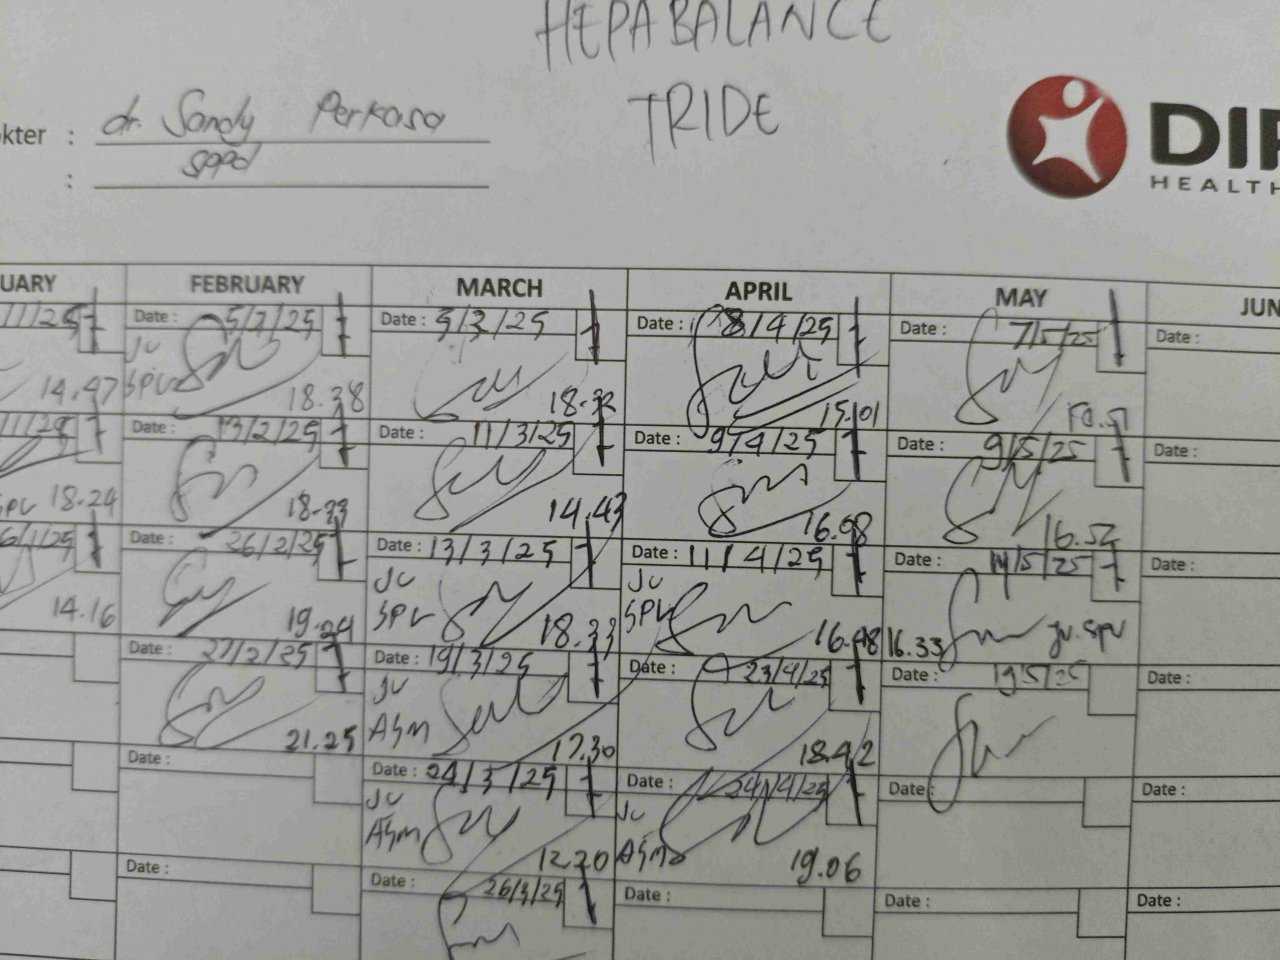 HEPABALANCE
TRIDE
kter : dr. Sandy Perkasa
: SPPD
DIP
HEALTH
UARY FEBRUARY MARCH APRIL MAY JUN
/1/25 Date : 5/2/25 Date : 5/3/25 Date : 8/4/25 Date : 7/5/25 Date :
JV
14.47 SPV 18.38 18.32 15.01
Date : 13/2/25 Date : 11/3/25 Date : 9/4/25 Date : 9/5/25 Date :
SPV 18.24 18.33 14.43 16.08 16.52
6/1/25 Date : 26/2/25 Date : 13/3/25 Date : 11/4/25 Date : 14/5/25 Date :
JV JV
14.16 19.24 SPV 18.33 SPV 16.48 16.33 JV. SPV
Date : 27/2/25 Date : 19/3/25 Date : 23/4/25 Date : 19/5/25 Date :
JV
21.25 ASM 17.30 18.42
Date : Date : 24/3/25 Date : 24/4/25 Date : Date :
JV JV
ASM 12.20 ASM 19.06
Date : Date : 26/3/25 Date : Date : Date :